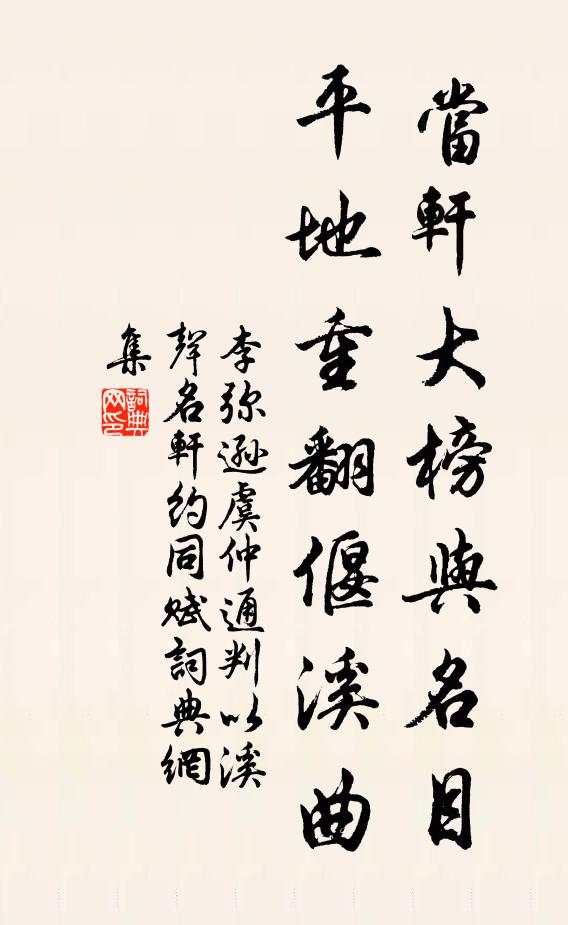 當軒大榜與名目
平地重翻偃溪曲
李弥遜虞仲通判以溪
聲名軒約同賦詞典網
集
詞典
网印